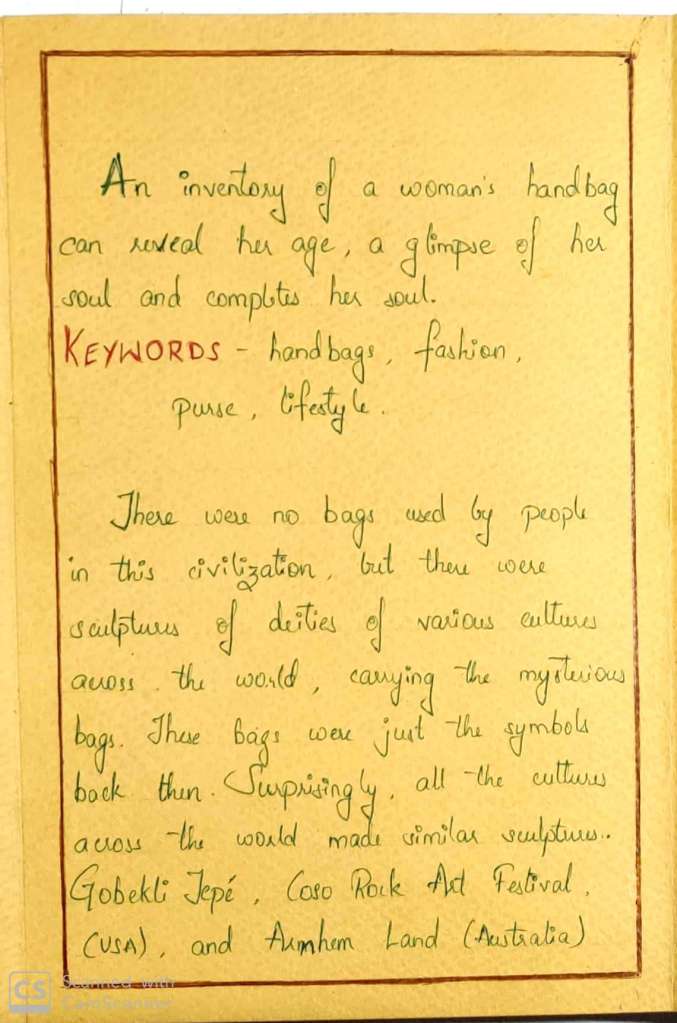 An inventory of a woman's handbag
can reveal her age, a glimpse of her
soul and completes her soul.
KEYWORDS - handbags, fashion,
purse, lifestyle.
There were no bags used by people
in this civilization, but there were
sculptures of deities of various cultures
across the world, carrying the mysterious
bags. These bags were just the symbols
back then. Surprisingly, all the cultures
across the world made similar sculptures..
Gobekli Tepé, Coso Rock Art Festival,
(USA), and Armhem Land (Australia)
CS Scanned with
CamScanner